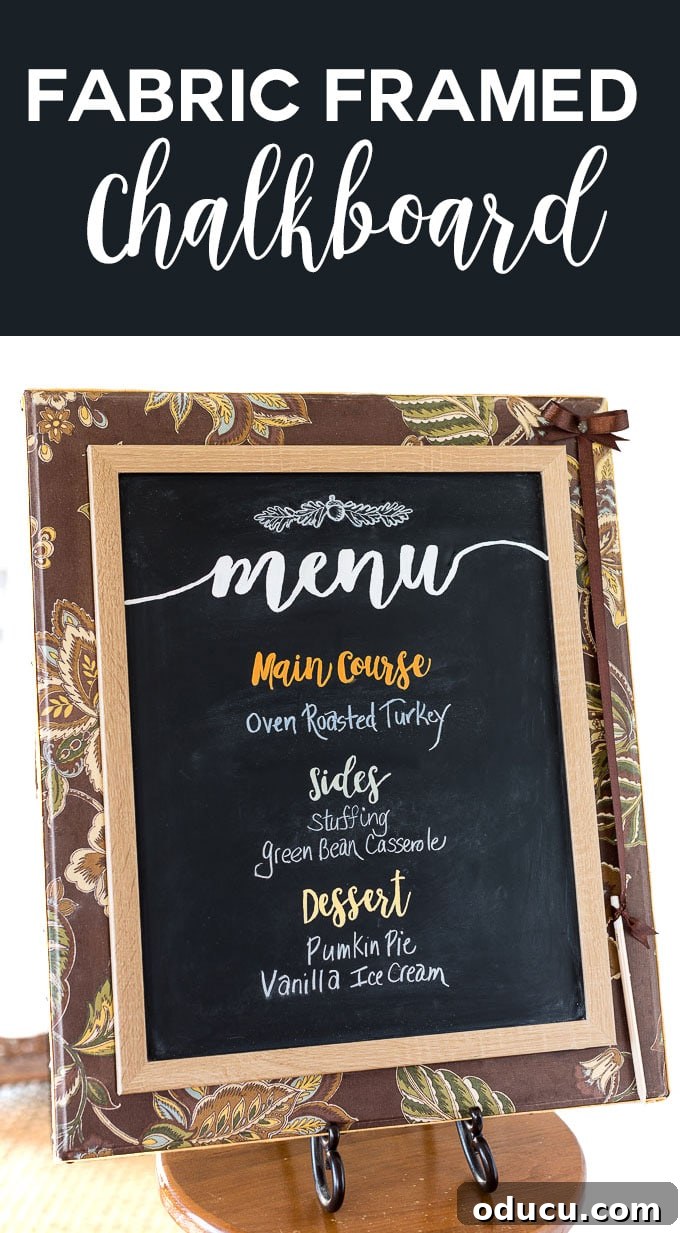 FABRIC FRAMED
Chalkboard
menu
Main Course
Oven Roasted Turkey
Sides
Stuffing
Green Bean Casserole
Dessert
Pumkin Pie
Vanilla Ice Cream
oducu.com